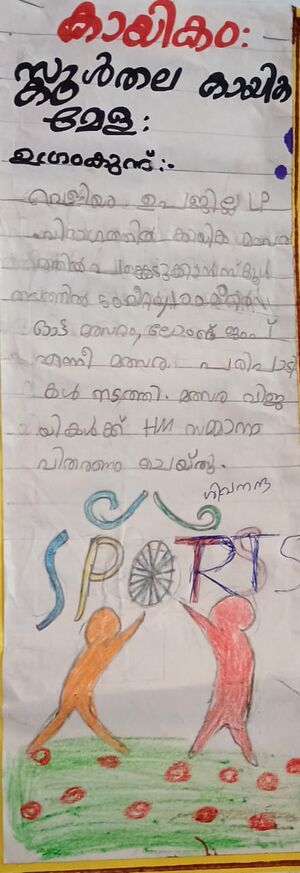 കായികം:
സ്കൂൾതല കായിക
മേള:
ഉഗ്രംകുന്ന്:-
വെളിയം ഉപജില്ല LP
വിഭാഗത്തിൽ കായിക മത്സര
ത്തിൽ പങ്കെടുക്കാൻ സ്കൂൾ
ഓട്ട മത്സരം, ലോങ്ങ് ജംപ്
എന്നീ മത്സര പരിപാടി
കൾ നടത്തി. മത്സര വിജ
യികൾക്ക് HM സമ്മാന
വിതരണം ചെയ്തു.
ശിവനന്ദ
SPORTS